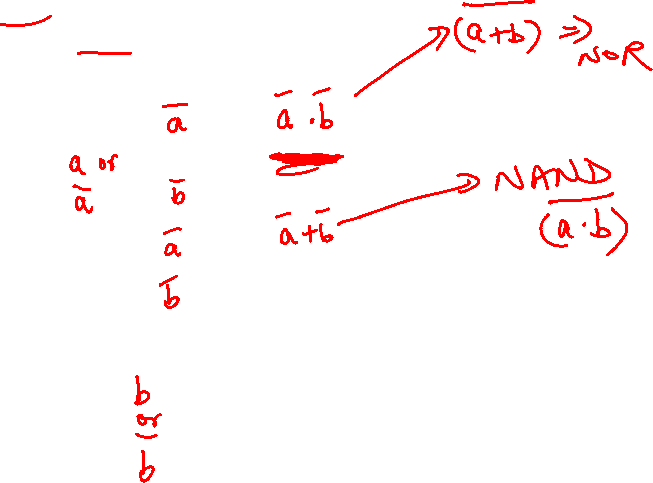 (a+b)‾ ⇒ NOR
a̅ a̅ . b̅
a or a̅
b̅
NAND
a̅ a̅ + b̅ (a . b)‾
b̅
b
or
b̅